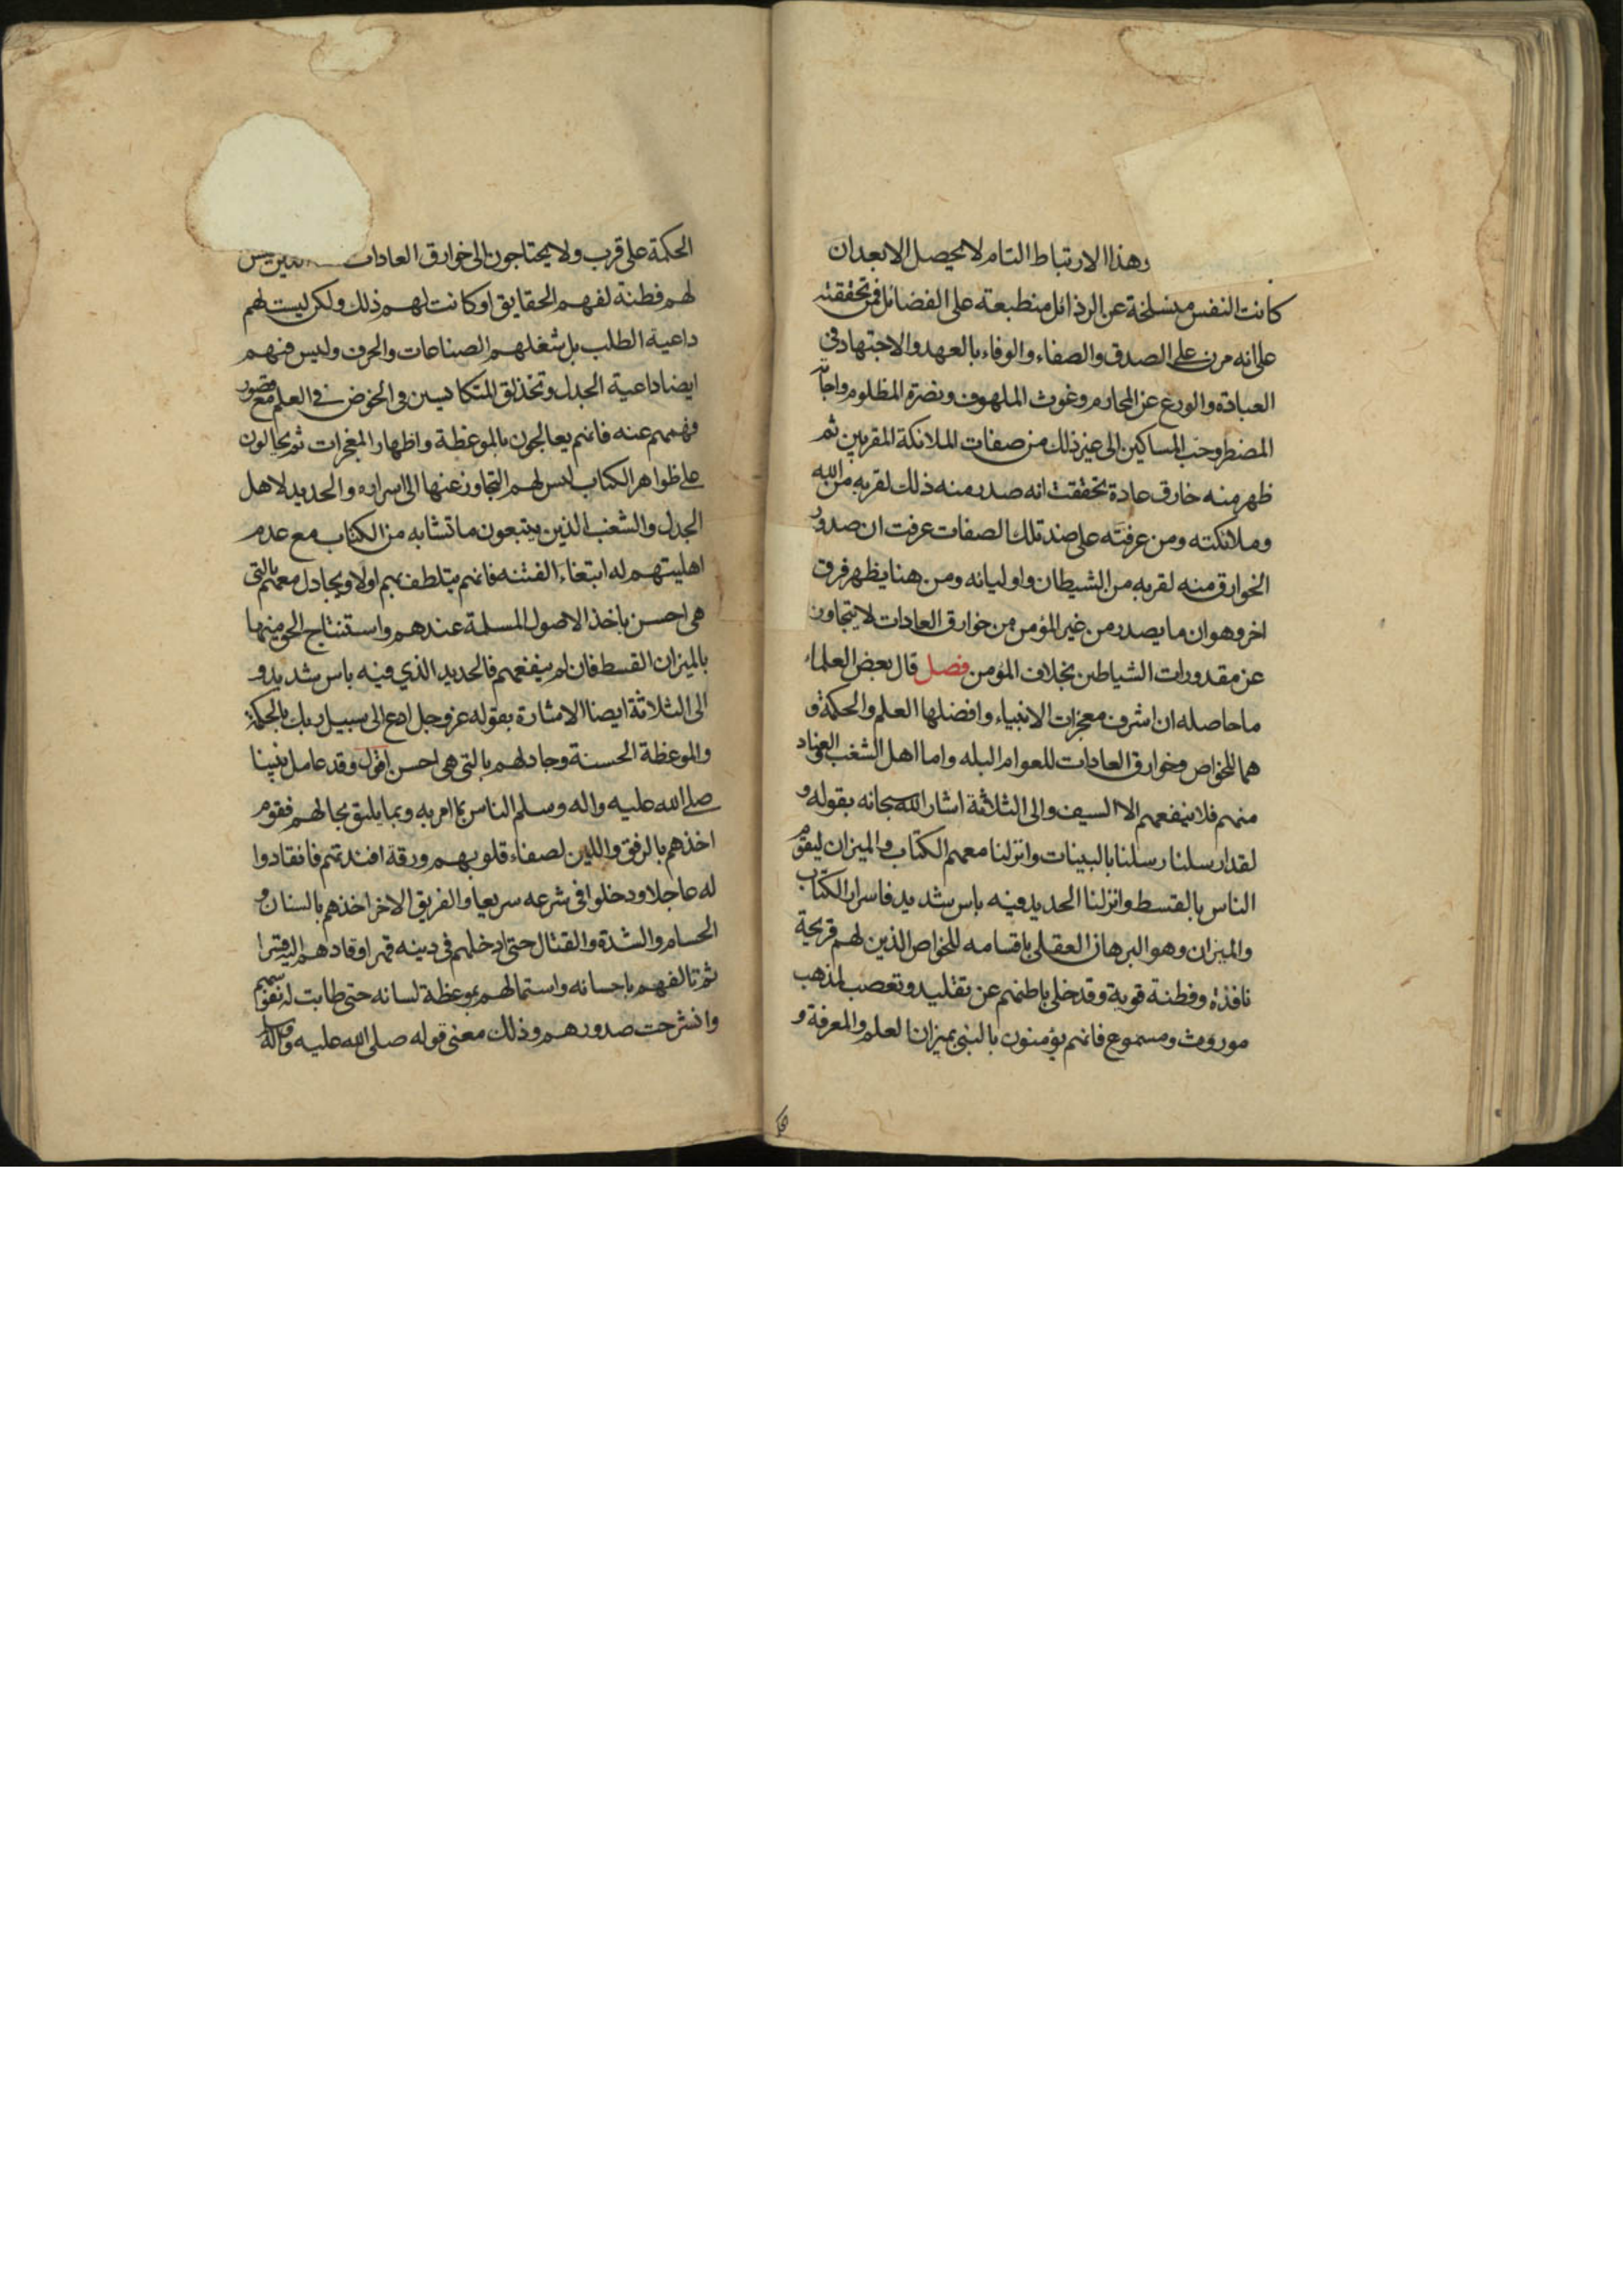 وهذا الارتباط التام لا يحصل الا بعد ان
كانت النفس منسلخة عن الرذائل منطبعة على الفضائل فمن تحققته
على انه مرن على الصدق والصفاء والوفاء بالعهد والاجتهاد في
العبادة والورع عن المحارم وغوث الملهوف ونصرة المظلوم واجابة
المضطر وحب المساكين الى غير ذلك من صفات الملائكة المقربين ثم
ظهر منه خارق عادة تحققت انه صدر منه ذلك لقربه من الله
وملائكته ومن عرفته على ضد تلك الصفات عرفت ان صدور
الخوارق منه لقربه من الشيطان واوليائه ومن هنا يظهر فرق
اخر وهو ان ما يصدر من غير المؤمن من خوارق العادات لا يتجاوز
عن مقدورات الشياطين بخلاف المؤمن فصل قال بعض العلماء
ما حاصله ان اشرف معجزات الانبياء وافضلها العلم والحكمة و
هما للخواص وخوارق العادات للعوام البله واما اهل الشغب والعناد
منهم فلا ينفعهم الا السيف والى الثلاثة اشار الله سبحانه بقوله و
لقد ارسلنا رسلنا بالبينات وانزلنا معهم الكتاب والميزان ليقوم
الناس بالقسط وانزلنا الحديد فيه باس شديد فاسرار الكتاب
والميزان وهو البرهان العقلي باقسامه للخواص الذين لهم قريحة
نافذة وفطنة قوية وقد خلى باطنهم عن تقليد وتعصب لمذهب
موروث ومسموع فانهم يؤمنون بالنبي بميزان العلم والمعرفة و
الحكمة على قرب ولا يحتاجون الى خوارق العادات ليس
لهم فطنة لفهم الحقايق او كانت لهم ذلك ولكن ليست لهم
داعية الطلب بل شغلهم الصناعات والحرف وليس فيهم
ايضا داعية الجدل وتحذلق المتكايسين في الخوض في العلم مع قصور
فهمهم عنه فانهم يعالجون بالموعظة واظهار المعجزات ثم يحالون
على ظواهر الكتاب ليس لهم التجاوز عنها الى اسراره والحديد لاهل
الجدل والشغب الذين يتبعون ما تشابه من الكتاب مع عدم
اهليتهم له ابتغاء الفتنه فانهم يتلطف بهم اولا ويجادل معهم بالتي
هي احسن باخذ الاصول المسلمة عندهم واستنتاج الحق منها
بالميزان القسط فان لم ينفعهم فالحديد الذي فيه باس شديد و
الى الثلاثة ايضا الاشارة بقوله عز وجل ادع الى سبيل ربك بالحكمة
والموعظة الحسنة وجادلهم بالتي هي احسن اقول وقد عامل نبينا
صلى الله عليه واله وسلم الناس بما امر به وبما يليق بحالهم فقوم
اخذهم بالرفق واللين لصفاء قلوبهم ورقة افئدتهم فانقادوا
له عاجلا ودخلوا في شرعه سريعا والفريق الاخر اخذهم بالسنان و
الحسام والشدة والقتال حتى ادخلهم في دينه قهرا وقادهم اليه قسرا
ثم تالفهم باحسانه واستمالهم بموعظة لسانه حتى طابت له نفوسهم
وانشرحت صدورهم وذلك معنى قوله صلى الله عليه واله